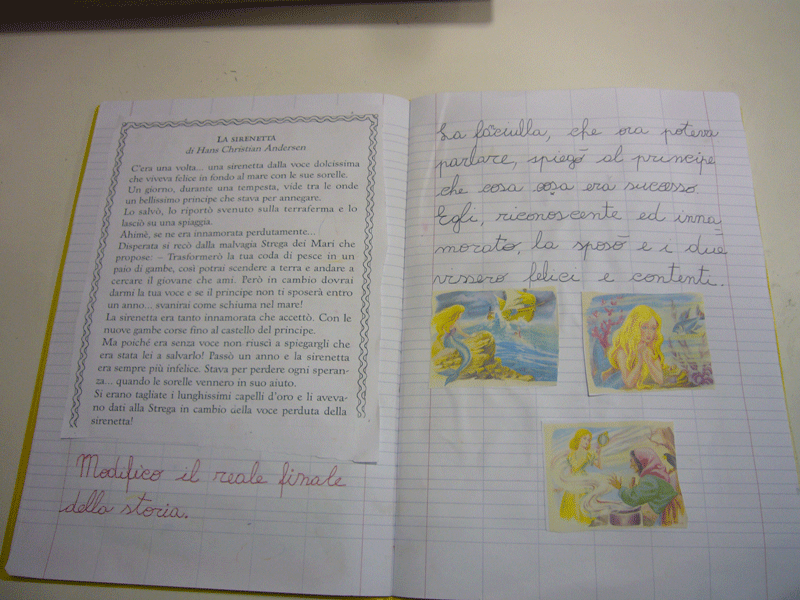 LA SIRENETTA
di Hans Christian Andersen
C'era una volta... una sirenetta dalla voce dolcissima
che viveva felice in fondo al mare con le sue sorelle.
Un giorno, durante una tempesta, vide tra le onde
un bellissimo principe che stava per annegare.
Lo salvò, lo riportò svenuto sulla terraferma e lo
lasciò su una spiaggia.
Ahimè, se ne era innamorata perdutamente...
Disperata si recò dalla malvagia Strega dei Mari che
propose: – Trasformerò la tua coda di pesce in un
paio di gambe, così potrai scendere a terra e andare a
cercare il giovane che ami. Però in cambio dovrai
darmi la tua voce e se il principe non ti sposerà entro
un anno... svanirai come schiuma nel mare!
La sirenetta era tanto innamorata che accettò. Con le
nuove gambe corse fino al castello del principe.
Ma poiché era senza voce non riuscì a spiegargli che
era stata lei a salvarlo! Passò un anno e la sirenetta
era sempre più infelice. Stava per perdere ogni speran-
za... quando le sorelle vennero in suo aiuto.
Si erano tagliate i lunghissimi capelli d'oro e li aveva-
no dati alla Strega in cambio della voce perduta della
sirenetta!
Modifico il reale finale
della storia.
La faciulla, che ora poteva
parlare, spiegò al principe
che cosa cosa era successo.
Egli, riconoscente ed inna-
morato, la sposò e i due
vissero felici e contenti.